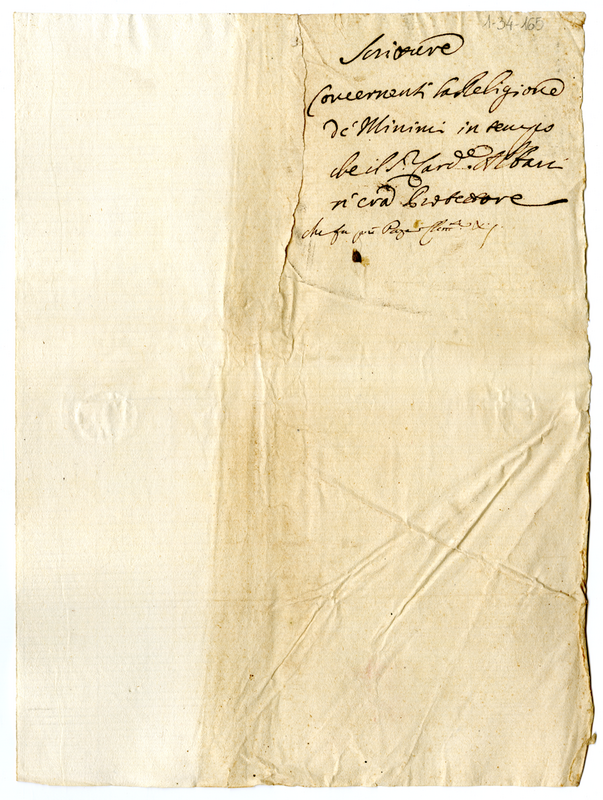 1-34-165
Scritture
Concernenti la Religione
de' Minimi in tempo
che il Sr. Card.e Albani
n'era Protettore
che fu poi Papa Clem.e XI